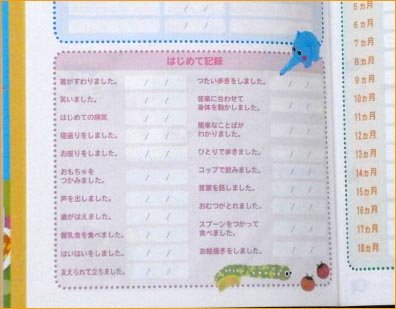 はじめて記録
首がすわりました。 / /
笑いました。 / /
はじめての病気 / /
寝返りをしました。 / /
お座りをしました。 / /
おもちゃを
つかみました。 / /
声を出しました。 / /
歯がはえました。 / /
離乳食を食べました。 / /
はいはいをしました。 / /
支えられて立ちました。 / /
つたい歩きをしました。 / /
音楽に合わせて
身体を動かしました。 / /
簡単なことばが
わかりました。 / /
ひとりで歩きました。 / /
コップで飲みました。 / /
言葉を話しました。 / /
おむつがとれました。 / /
スプーンをつかって
食べました。 / /
お絵描きをしました。 / /
5ヵ月
6ヵ月
7ヵ月
8ヵ月
9ヵ月
10ヵ月
11ヵ月
12ヵ月
13ヵ月
14ヵ月
15ヵ月
16ヵ月
17ヵ月
18ヵ月